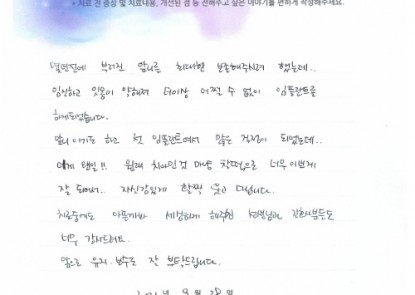 * 치료 전 증상 및 치료내용, 개선된 점 등 전해주고 싶은 이야기를 편하게 작성해주세요.
몇년전에 부러진 앞니를 최대한 보존해주시려 했는데..
임신하고 잇몸이 약해져 더이상 어쩔 수 없이 임플란트를
하게되었습니다.
앞니 이기도 하고 첫 임플란트여서 많은 걱정이 되었는데..
이게 웬일!! 원래 치아인것 마냥 찰떡으로 너무 이쁘게
잘 되어서.. 자신감있게 활짝 웃고 다닙니다.
치료중에도 아픈가봐 세심하게 해주신 선생님과 간호사분들도
너무 감사드려요.
앞으로 유지.보수도 잘 부탁드립니다.
년 월